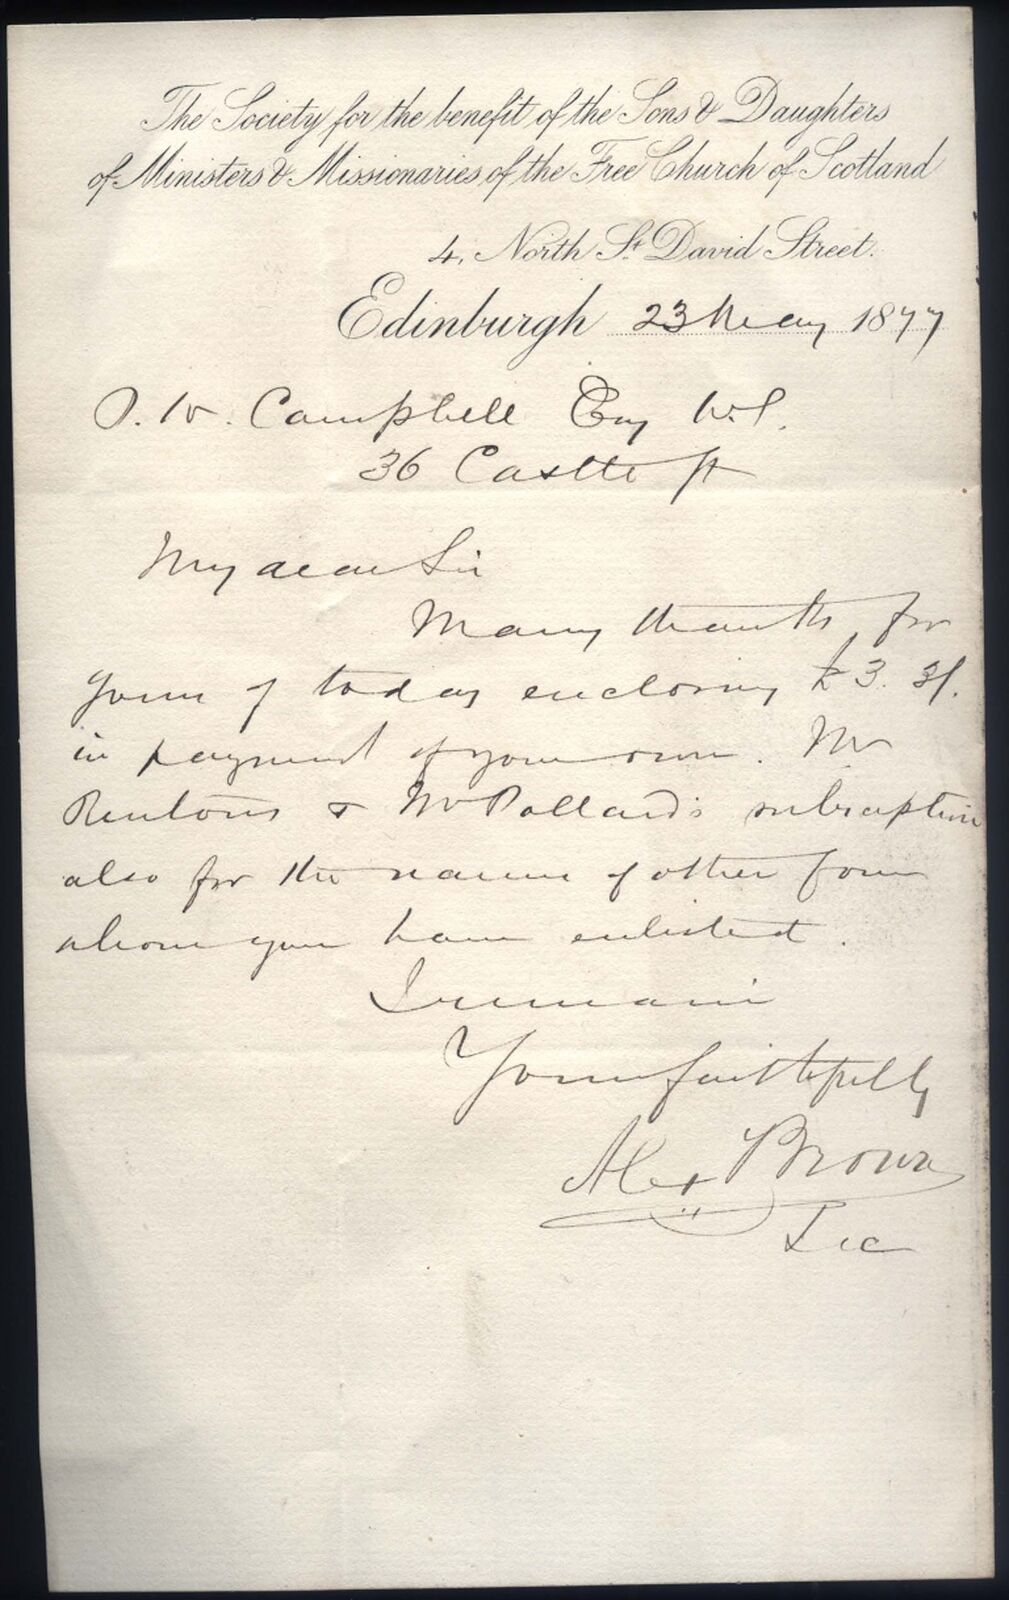 The Society for the benefit of the Sons & Daughters
of Ministers & Missionaries of the Free Church of Scotland
4, North St. David Street.
Edinburgh 23 May 1877
J. W. Campbell Esq W.S.
36 Castle St
My dear Sir
Many thanks for
yours of today enclosing £3. 3/.
in payment of your own. Mr
Renton's & Mr Pollard's subscription
also for the names of other four
whom you have enlisted.
I remain
Yours faithfully
Alex Brown
Sec